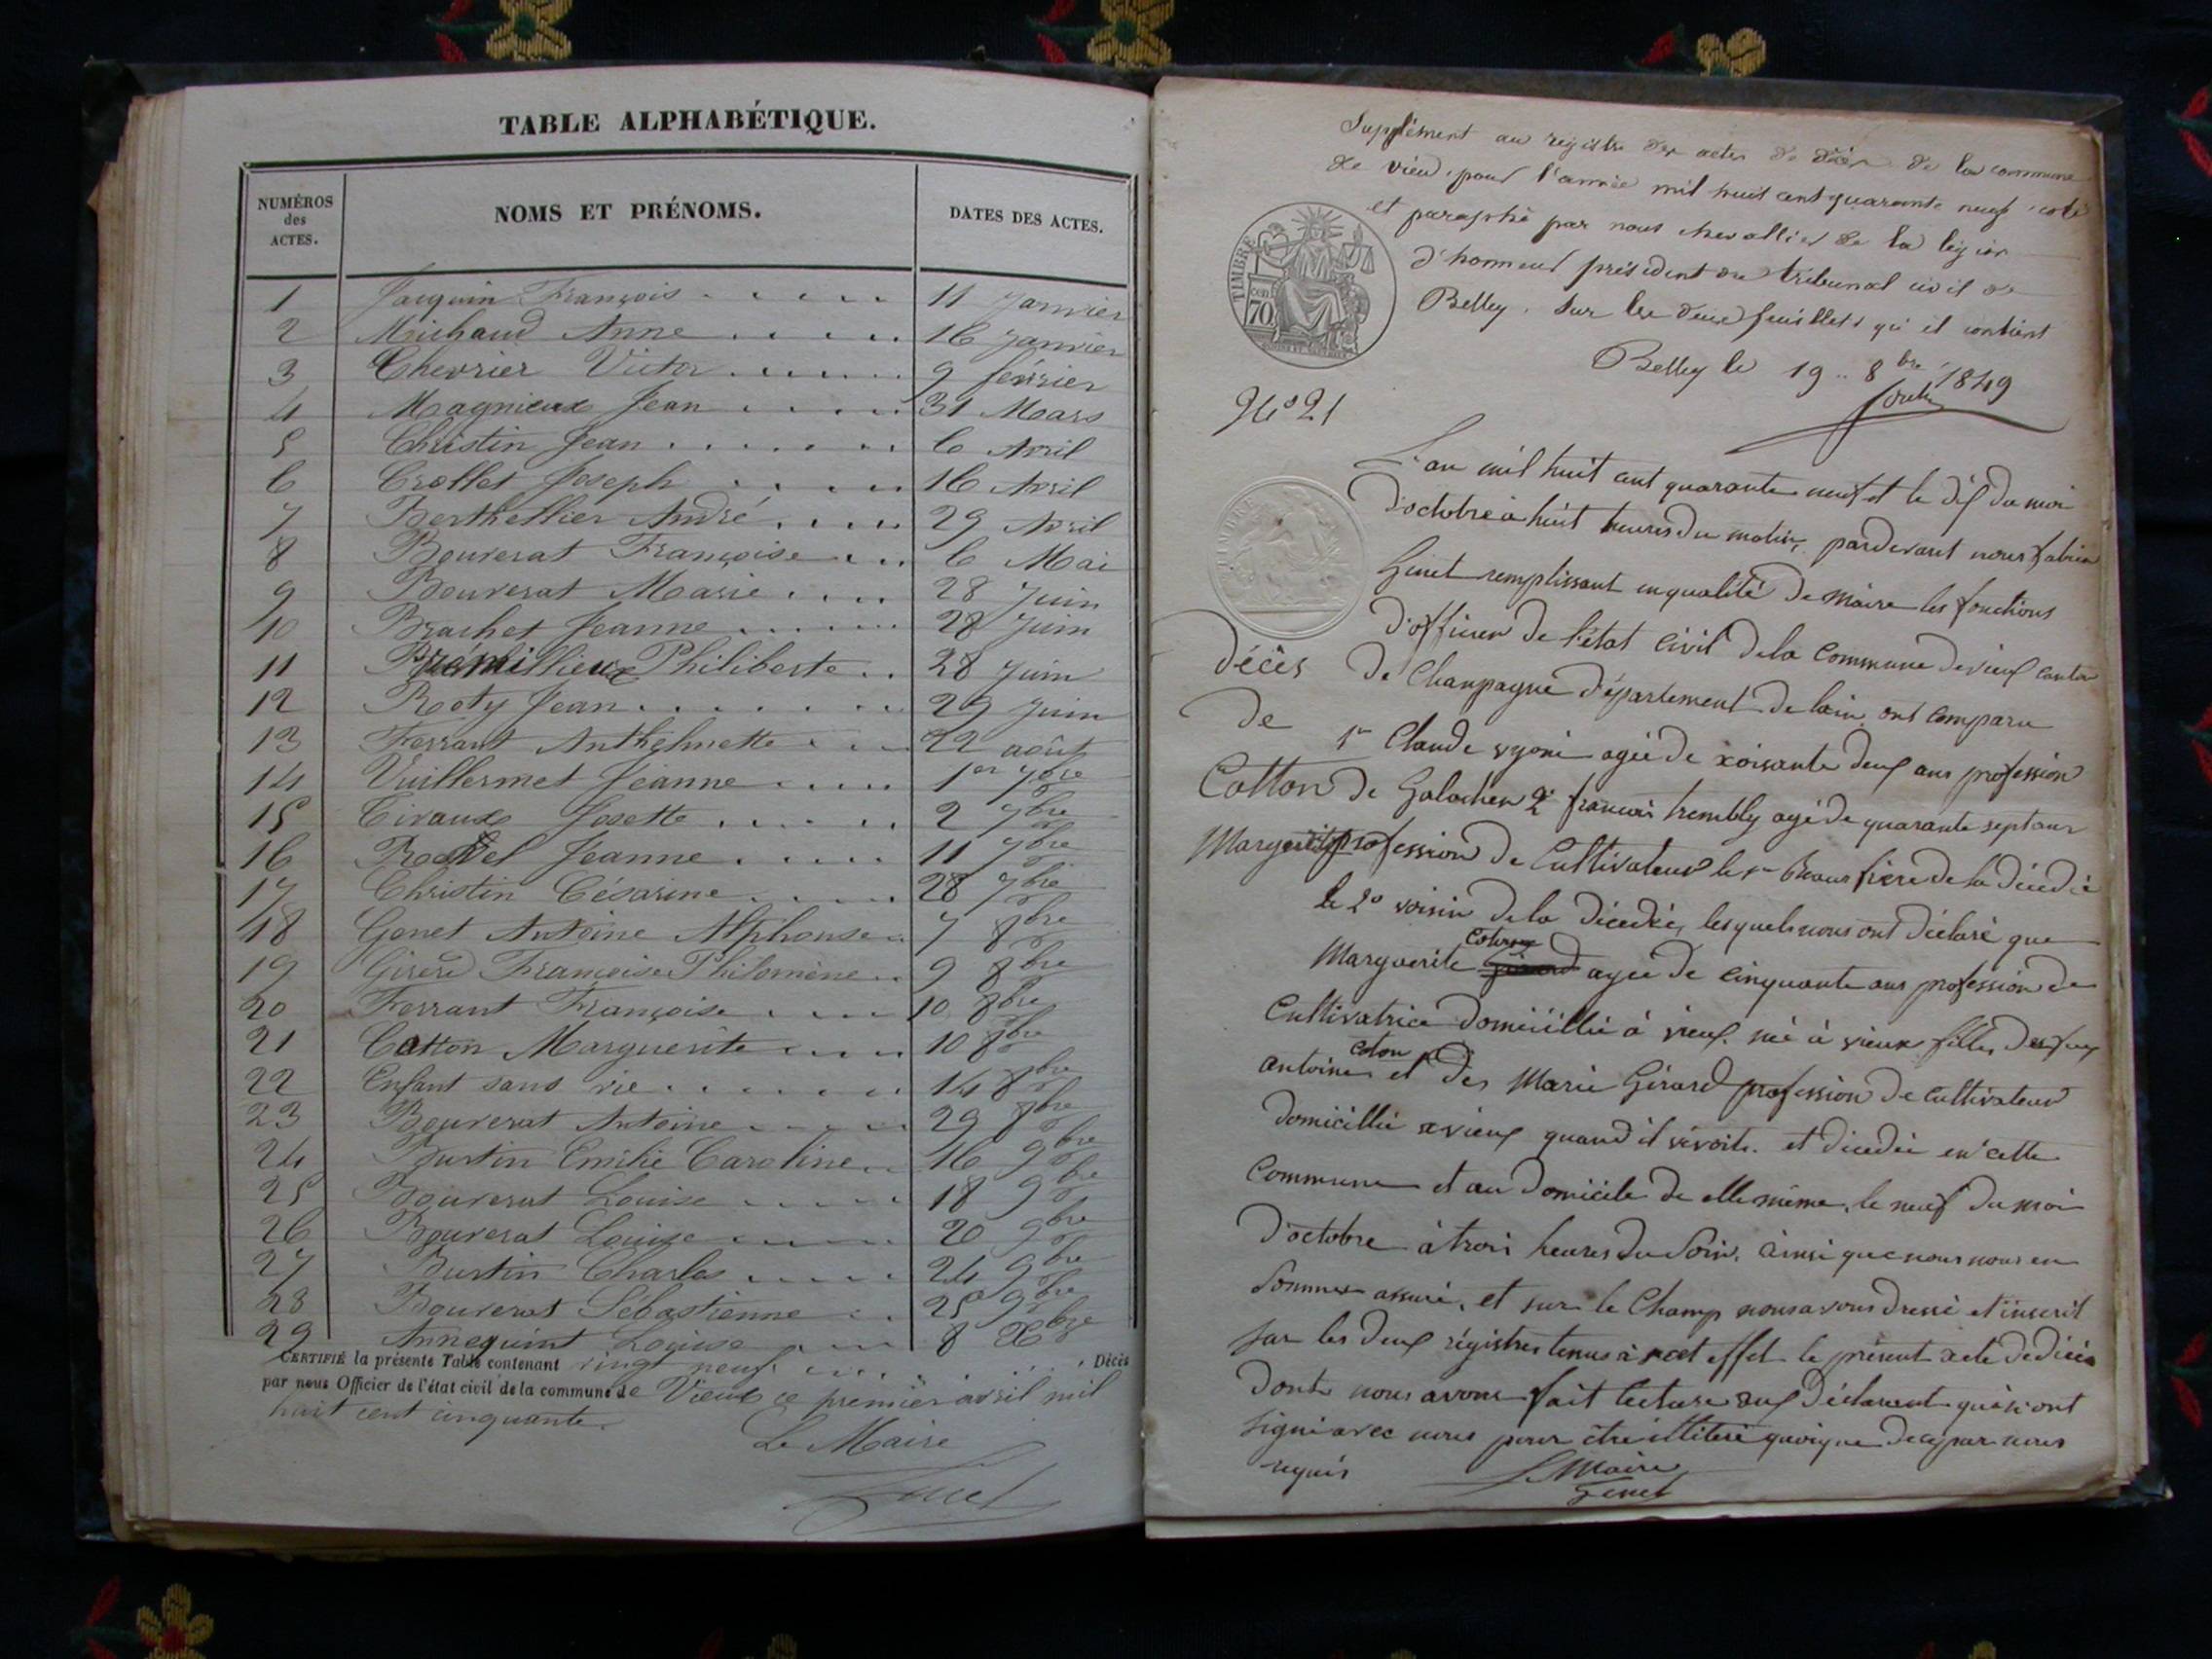 TABLE ALPHABÉTIQUE.
NUMÉROS
des
ACTES.
NOMS ET PRÉNOMS.
DATES DES ACTES.
1 Jacquin François 11 Janvier
2 Michaud Anne 16 Janvier
3 Chevrier Victor 9 février
4 Magnieux Jean 31 Mars
5 Christin Jean 6 Avril
6 Crollet Joseph 16 Avril
7 Berthellier André 29 Avril
8 Bouverat Françoise 6 Mai
9 Bouverat Marie 28 Juin
10 Brachet Jeanne 28 Juin
11 Prémillieux Philiberte 28 Juin
12 Roty Jean 29 Juin
13 Ferrant Anthelmette 22 août
14 Vuillermet Jeanne 1er 7bre
15 Tivaux Josette 2 7bre
16 Jeanne 11 7bre
17 Christin Césarine 28 7bre
18 Genet Antoine Alphonse 7 8bre
19 Girerd Françoise Philomène 9 8bre
20 Ferrant Françoise 10 8bre
21 Cotton Marguerite 10 8bre
22 Enfant sans vie 14 8bre
23 Bouverat Antoine 29 8bre
24 Burtin Emilie Caroline 16 9bre
25 Bouverat Louise 18 9bre
26 Bouverat Louise 20 9bre
27 Burtin Charles 24 9bre
28 Bouverat Sébastienne 25 9bre
29 Annequint Louise 8 Xbre
CERTIFIÉ la présente Table contenant vingt neuf Décès
par nous Officier de l'état civil de la commune de Vieux ce premier avril mil
huit cent cinquante.
Le Maire
Genet
Supplément au registre des actes de décès de la commune
de vieu, pour l'année mil huit cent quarante neuf coté
et paraphé par nous chevallier de la légion
d'honneur président du tribunal civil de
Belley, sur les deux feuillets qu'il contient
Belley le 19 8bre 1849
TIMBRE
70
N° 21
TIMBRE
L'an mil huit cent quarante neuf et le dix du moi
d'octobre à huit heures du matin, pardevant nous fabien
Genet remplissant en qualité de Maire les fonctions
d'officier de l'état civil de la Commune de vieux canton
décès de Champagne département de lain ont comparu
de 1er Claude agée de soixante deux ans profession
Cotton de Galocher 2e francois trembly agé de quarante sept ans
Marguerite profession de Cultivateur le 1er Beaux frère de la décédée
le 2e voisin de la décédée, lesquels nous ont déclaré que
Marguerite coton agée de cinquante ans profession de
Cultivatrice domicilliée à vieux née à vieux fille de feu
antoine coton et des Marie Girard profession de cultivateur
domicillié a vieux quand il vivoit. et décédée en cette
Commune et au domicile de elle même, le neuf du moi
d'octobre à trois heures du Soir, ainsi que nous nous en
Sommes assuré, et sur le Champ nous avons dressé et inscrit
sur les deux régistres tenus à cet effet le présent acte de décès
dont nous avons fait lecture aux déclarant qui n'ont
signé avec nous pour être illiteré quoique de ce par nous
requis
Le Maire
Genet